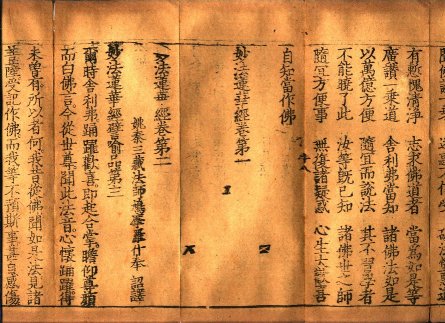 有慙愧清淨　志求佛道者　當為如是等
廣讚一乗道　舍利弗當知　諸佛法如是
以萬億方便　隨宜而說法　其不習學者
不能曉了此　汝等既已知　諸佛世之師
隨宜方便事　無復諸疑惑　心生大歡喜
自知當作佛
妙法蓮華經卷第一
妙法蓮華經卷第二
姚秦三藏法師鳩摩羅什奉　詔譯
妙法蓮華經譬喻品第三
爾時舍利弗踊躍歡喜即起合掌瞻仰尊顏
而白佛言今從世尊聞此法音心懷踊躍得
未曽有所以者何我昔從佛聞如是法見諸
菩薩受記作佛而我等不預斯事甚自感傷